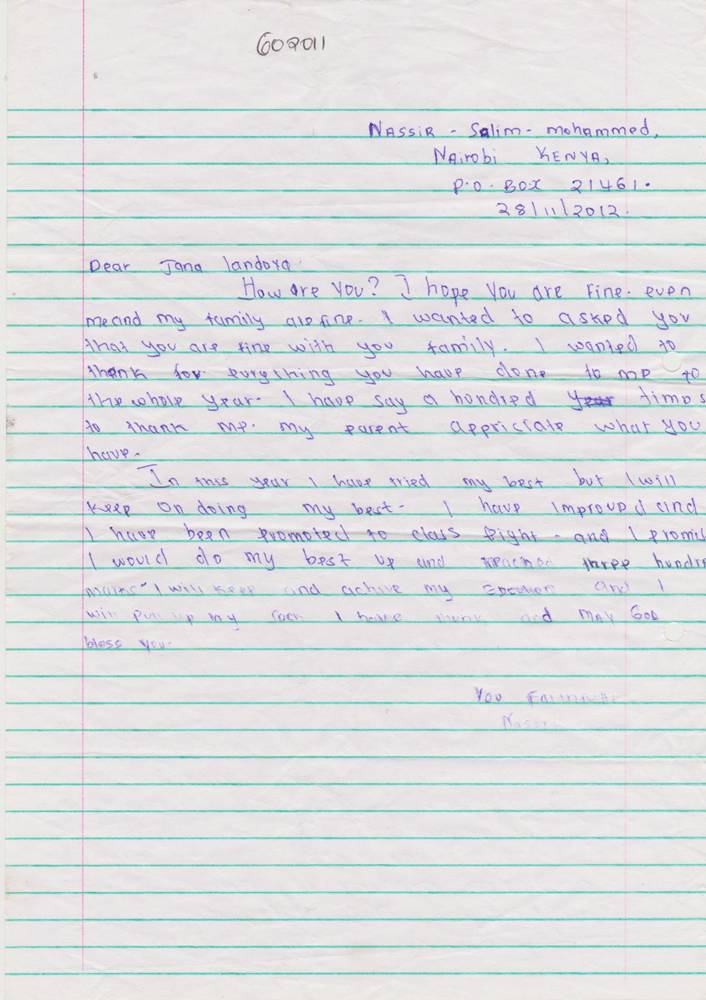 602011
NASSIR - Salim - mohammed,
NAIROBI KENYA,
P.O. BOX 21461.
28/11/2012.
Dear Jana landova.
How are you? I hope you are fine. even
meand my family arefine. I wanted to asked you
that you are fine with you family. I wanted to
thank for evrything you have done to me to
the whole year. I have say a hundred times
to thank me. my parent appriciate what you
have.
In this year I have tried my best but I will
keep on doing my best. I have improved and
I have been promoted to class Eight. and I promis
I would do my best up and reached three hundre
marks I will keep and achive my and I
will pull up my I have and MAY GOD
bless you.
YOU
Nassir